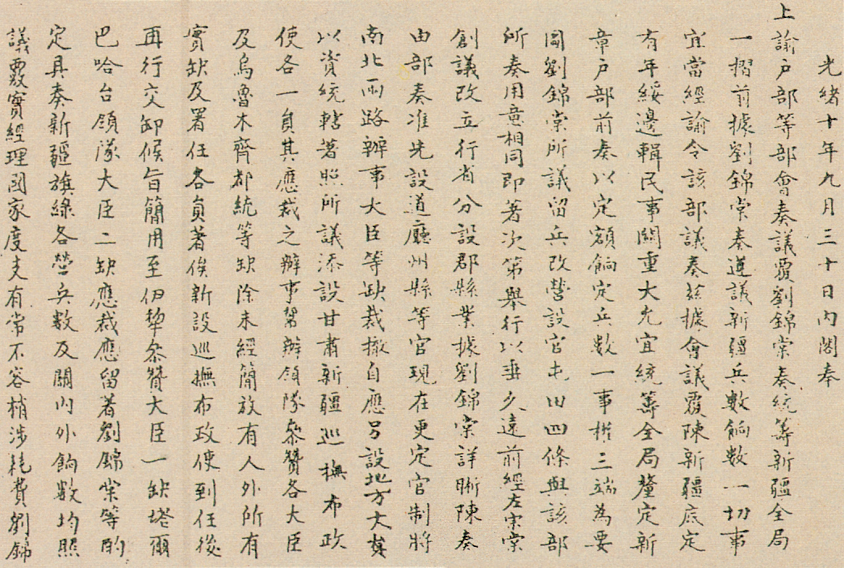 光緒十年九月三十日內閣奉
上諭戶部等部會奏議覆劉錦棠奏統籌新疆全局
一摺前據劉錦棠奏遵議新疆兵數餉數一切事
宜當經諭令該部議奏茲據會議覆陳新疆底定
有年綏邊輯民事關重大允宜統籌全局釐定新
章戶部前奏以定額餉定兵數一事權三端為要
圖劉錦棠所議留兵改營設官屯田四條與該部
所奏用意相同即著次第舉行以垂久遠前經左宗棠
創議改立行省分設郡縣業據劉錦棠詳晰陳奏
由部奏准先設道廳州縣等官現在更定官制將
南北兩路辦事大臣等缺裁撤自應另設地方大員
以資統轄著照所議添設甘肅新疆巡撫布政
使各一員其應裁之辦事幫辦領隊參贊各大臣
及烏魯木齊都統等缺除未經簡放有人外所有
實缺及署任各員著俟新設巡撫布政使到任後
再行交卸候旨簡用至伊犂參贊大臣一缺塔爾
巴哈台領隊大臣二缺應裁應留著劉錦棠等酌
定具奏新疆旗綠各營兵數及關內外餉數均照
議覈實經理國家度支有常不容稍涉耗費劉錦